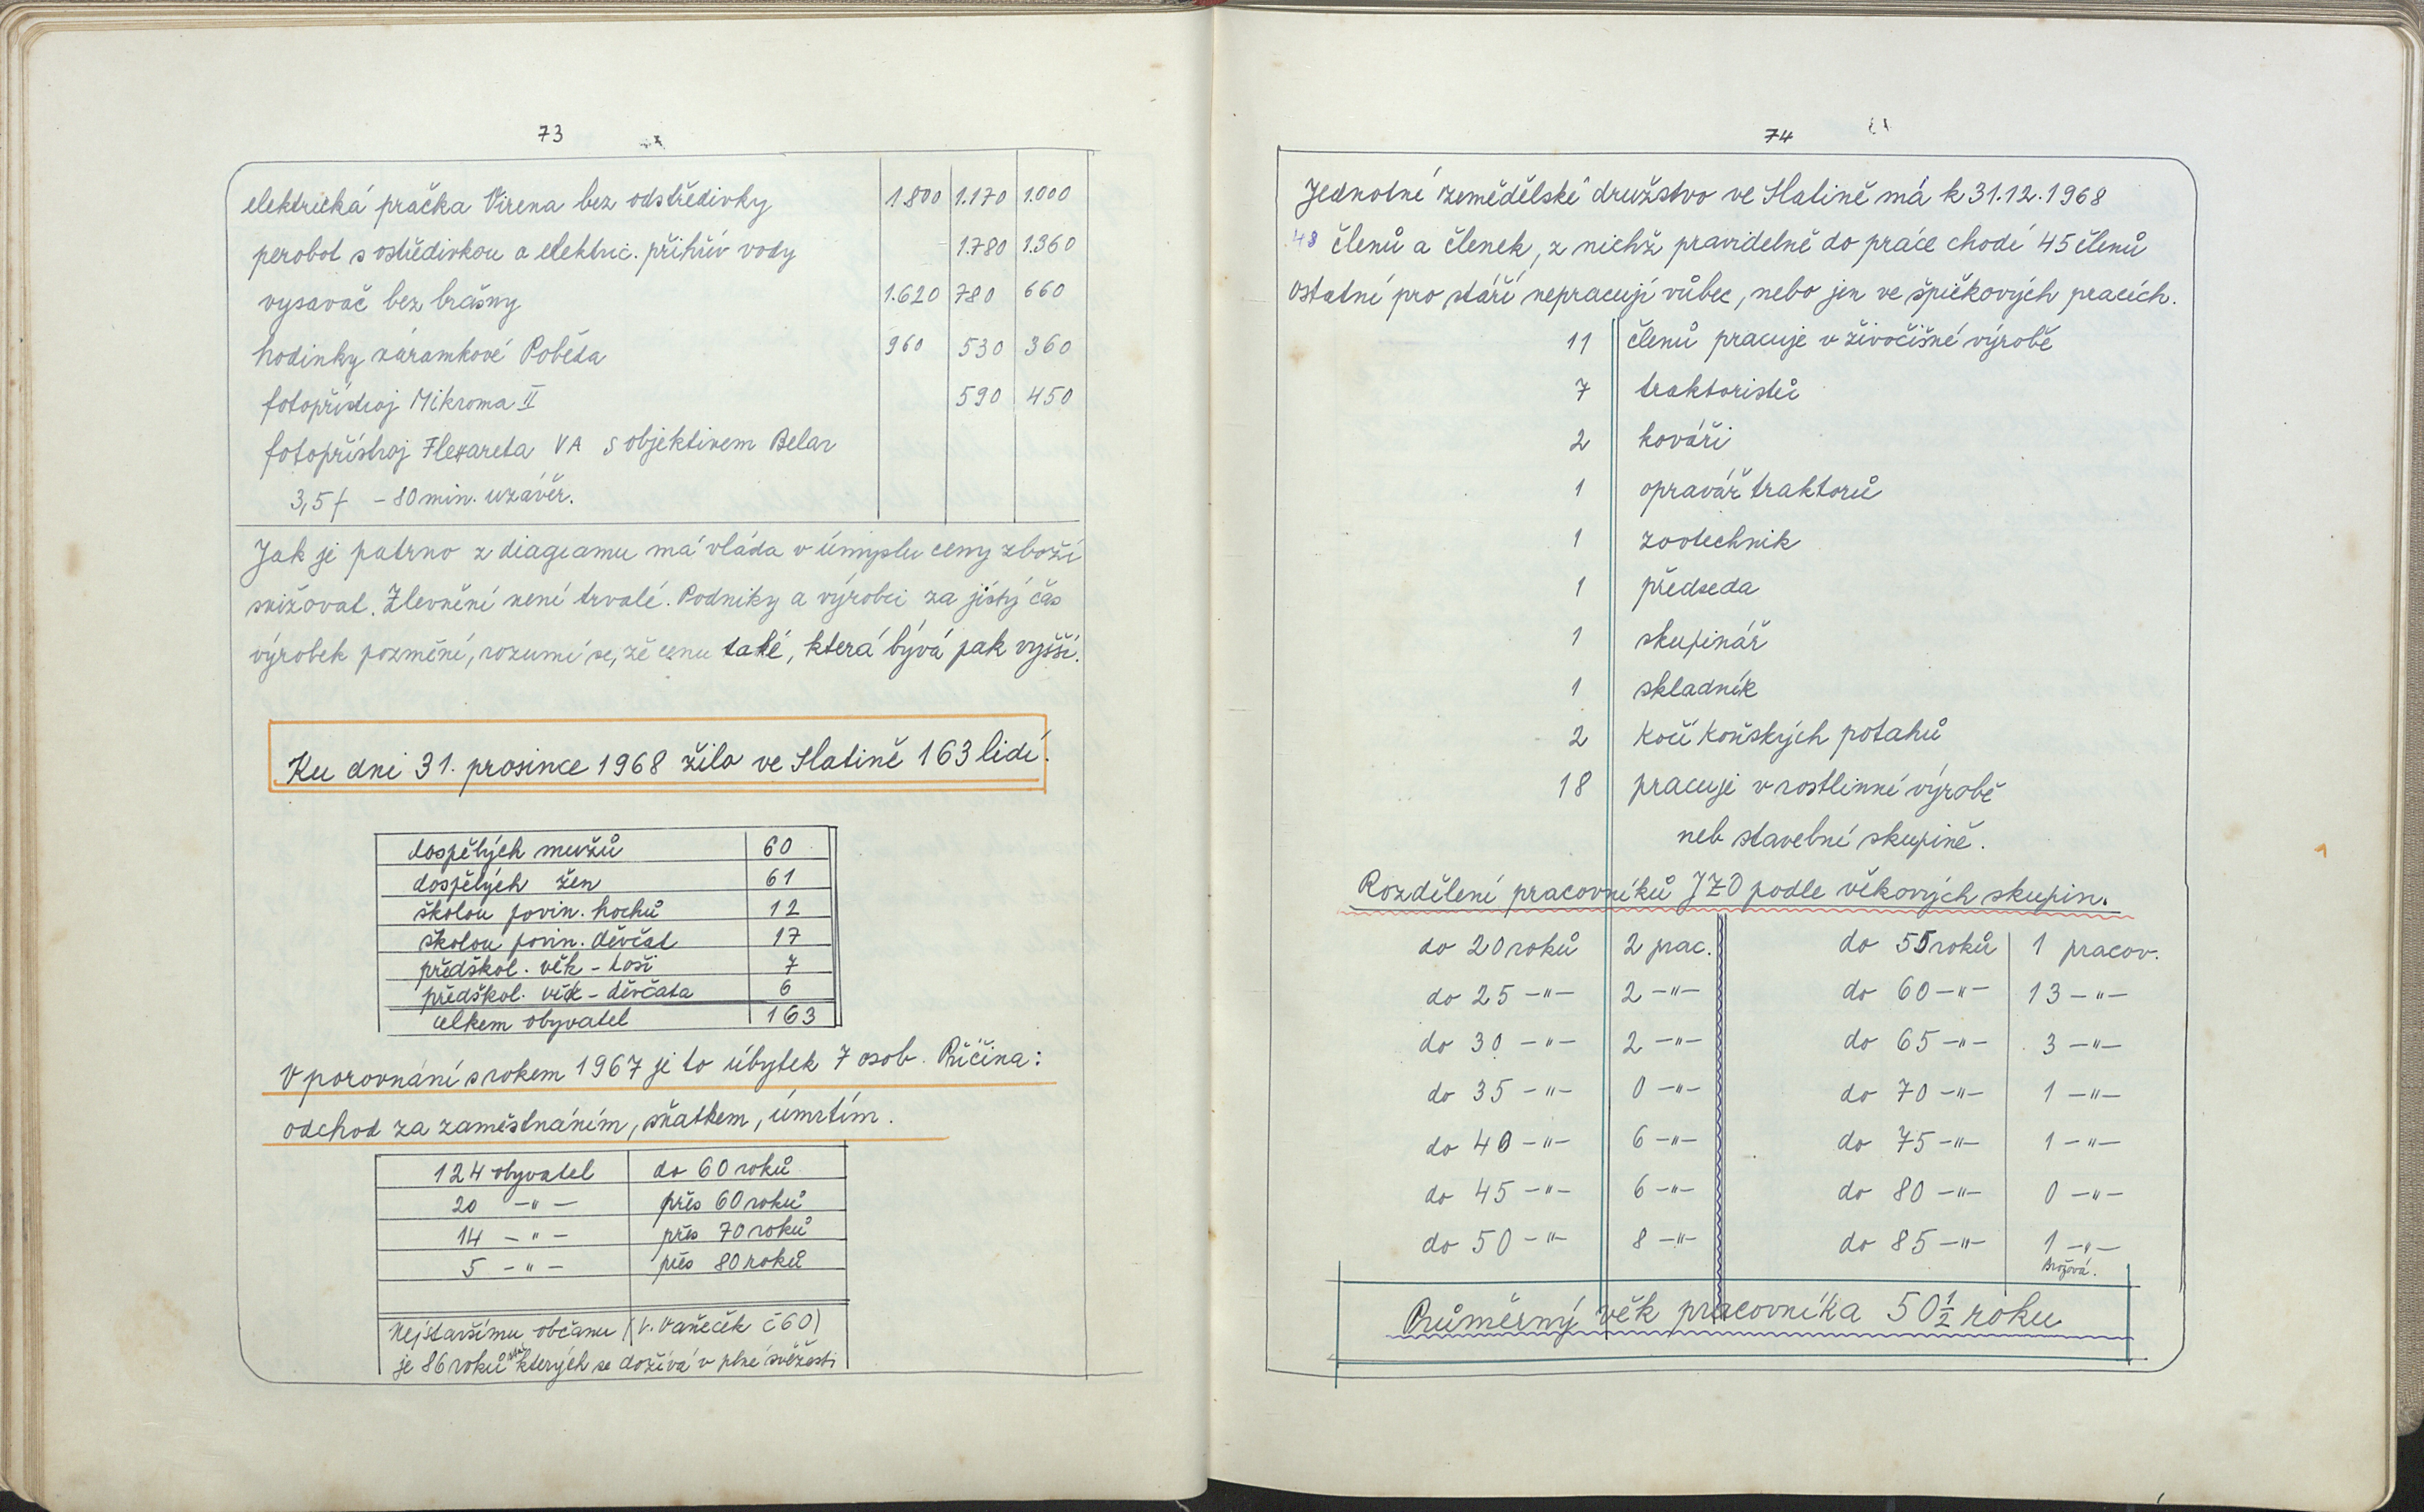 73
elektrická pračka Virena bez odstředivky 1.800 1.170 1.000
perobot s ostředivkou a elektric. přihřív vody 1.780 1.360
vysavač bez brašny 1.620 780 660
hodinky náramkové Poběda 960 530 360
fotopřístroj Mikroma II 590 450
fotopřístroj Flexareta VA s objektivem Belar
3,5f - 80 min. uzávěr.
Jak je patrno z diagramu má vláda v úmyslu ceny zboží
snižovat. Zlevnění není trvalé. Podniky a výrobci za jistý čas
výrobek pozmění, rozumí se, že cenu také, která bývá pak vyšší.
Ku dni 31. prosince 1968 žilo ve Slatině 163 lidí.
dospělých mužů 60
dospělých žen 61
školou povin. hochů 12
školou povin. děvčat 17
předškol. věk - hoši 7
předškol. věk - děvčata 6
celkem obyvatel 163
V porovnání s rokem 1967 je to úbytek 7 osob. Příčina:
odchod za zaměstnáním, sňatkem, úmrtím.
124 obyvatel do 60 roků
20 -"- přes 60 roků
14 -"- přes 70 roků
5 -"- přes 80 roků
Nejstaršímu občanu (V. Vaněček č 60)
je 86 roků kterých se dožívá v plné svěžesti
74
Jednotné zemědělské družstvo ve Slatině má k 31.12.1968
48 členů a členek, z nichž pravidelně do práce chodí 45 členů
ostatní pro stáří nepracují vůbec, nebo jen ve špičkových pracích.
11 členů pracuje v živočišné výrobě
7 traktoristů
2 kováři
1 opravář traktorů
1 zootechnik
1 předseda
1 skupinář
1 skladník
2 kočí koňských potahů
18 pracuje v rostlinné výrobě
neb stavební skupině.
Rozdělení pracovníků JZD podle věkových skupin.
do 20 roků 2 prac. do 55 roků 1 pracov.
do 25 -"- 2 -"- do 60 -"- 13 -"-
do 30 -"- 2 -"- do 65 -"- 3 -"-
do 35 -"- 0 -"- do 70 -"- 1 -"-
do 40 -"- 6 -"- do 75 -"- 1 -"-
do 45 -"- 6 -"- do 80 -"- 0 -"-
do 50 -"- 8 -"- do 85 -"- 1 -"-
Brožová.
Průměrný věk pracovníka 50 ½ roku